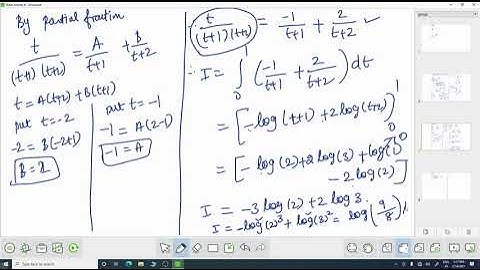 By partial fraction
t/((t+1)(t+2)) = A/(t+1) + B/(t+2)
t = A(t+2) + B(t+1)
put t = -2
-2 = B(-2+1)
B = 2
put t = -1
-1 = A(2-1)
-1 = A
t/((t+1)(t+2)) = -1/(t+1) + 2/(t+2) ✓
∴ I = ∫₀¹ (-1/(t+1) + 2/(t+2)) dt
= [-log(t+1) + 2log(t+2)]₀¹
= [-log(2) + 2log(3) + log(1)⁰ - 2log(2)]
I = -3log(2) + 2log 3.
I = -log(2)³ + log(3)² = log(9/8)